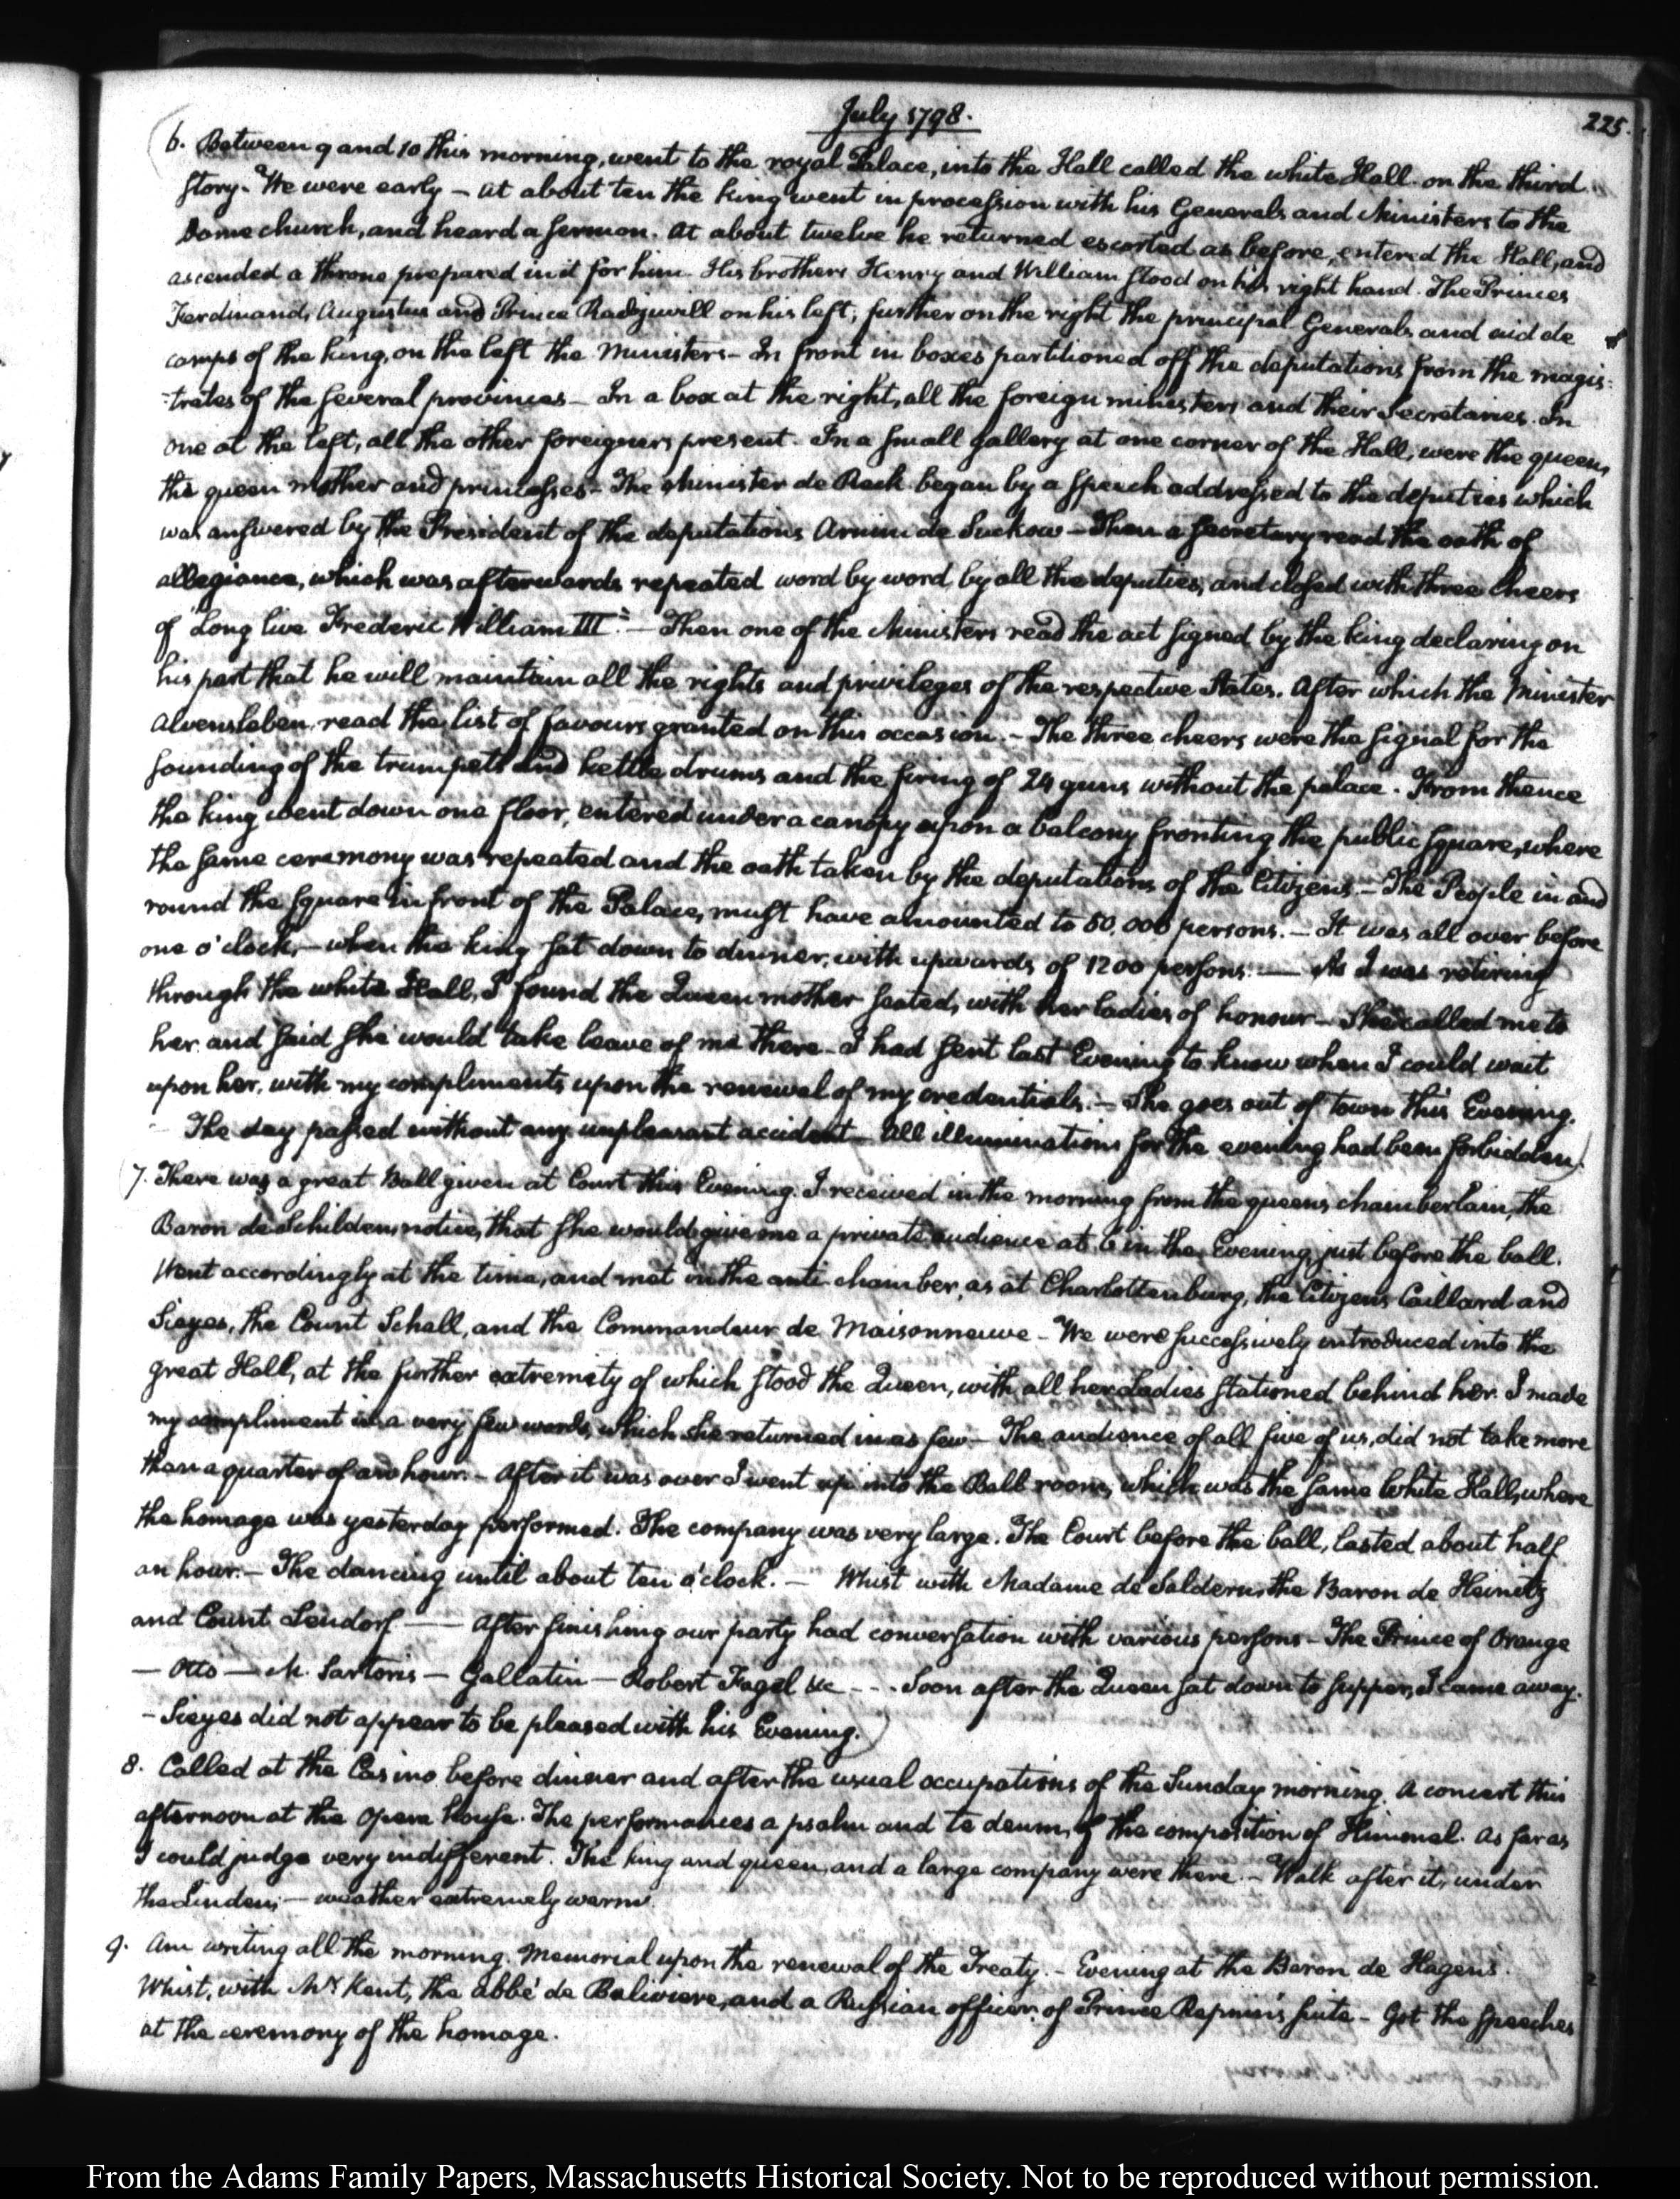 July 1798.
225.
6. Between 9 and 10 this morning, went to the royal Palace, into the Hall called the white Hall on the third
story. We were early – at about ten the king went in procession with his Generals and Ministers to the
Dome church, and heard a sermon. At about twelve he returned escorted as before, entered the Hall, and
ascended a throne prepared in it for him. His brothers Henry and William stood on his right hand. The Princes
Ferdinand, Augustus and Prince Radziwill on his left; further on the right the principal Generals and aid de
camps of the king, on the left the Ministers – In front in boxes partitioned off the deputations from the magis-
-trates of the several provinces – In a box at the right, all the foreign ministers and their Secretaries. In
one at the left, all the other foreigners present. In a small gallery at one corner of the Hall, were the queen,
the queen mother and princesses – The Minister de Reck began by a speech addressed to the deputies which
was answered by the President of the deputations Arnim de Suckow – Then a Secretary read the oath of
allegiance, which was afterwards repeated word by word, by all the deputies, and closed with three cheers
of "Long live Frederic William III." – Then one of the Ministers read the act signed by the king declaring on
his part that he will maintain all the rights and privileges of the respective States. After which the Minister
Alvensleben read the list of favours granted on this occasion. – The three cheers were the signal for the
sounding of the trumpets and kettle drums and the firing of 24 guns without the palace. From thence
the king went down one floor, entered under a canopy upon a balcony fronting the public square, where
the same ceremony was repeated and the oath taken by the deputations of the Citizens. – The People in and
round the square in front of the Palace, must have amounted to 50,000 persons. – It was all over before
one o'clock, – when the king sat down to dinner, with upwards of 1200 persons. — As I was retiring
through the white Hall, I found the Queen mother seated, with her ladies of honour – She called me to
her and said she would take leave of me there – I had sent last Evening to know when I could wait
upon her, with my compliments upon the renewal of my credentials. – She goes out of town this Evening.
– The day passed without any unpleasant accident – All illuminations for the evening had been forbidden.
7. There was a great Ball given at Court this Evening. I received in the morning from the queens chamberlain, the
Baron de Schilden, notice, that she would give me a private audience at 6 in the Evening, just before the ball.
Went accordingly at the time, and met in the anti-chamber, as at Charlottenburg, the Citizens Caillard and
Sieyes, the Count Schall, and the Commandeur de Maisonneuve – We were successively introduced into the
great Hall, at the further extremity of which stood the Queen, with all her Ladies stationed behind her. I made
my compliment in a very few words, which she returned in as few – The audience of all five of us, did not take more
than a quarter of an hour. – After it was over I went up into the Ball room, which was the same White Hall, where
the homage was yesterday performed. The company was very large. The Court before the ball, lasted about half
an hour. – The dancing until about ten o'clock. – Whist with Madame de Saldern, the Baron de Heinitz
and Count Lendorf — After finishing our party had conversation with various persons – The Prince of Orange
– Otto – M. Sartoris – Gallatin – Robert Fagel &c - - - Soon after the Queen sat down to supper, I came away.
– Sieyes did not appear to be pleased with his Evening.
8. Called at the Casino before dinner and after the usual occupations of the Sunday morning. A concert this
afternoon at the Opera house. The performances a psalm and te deum, of the composition of Himmel. As far as
I could judge very indifferent. The king and queen, and a large company were there. – Walk after it, under
the Lindens – weather extremely warm.
9. Am writing all the morning. Memorial upon the renewal of the Treaty. – Evening at the Baron de Hagen's.
Whist, with Mr. Kent, the abbé de Baliviere, and a Russian officer of Prince Repnin's suite – Got the speeches
at the ceremony of the homage.
From the Adams Family Papers, Massachusetts Historical Society. Not to be reproduced without permission.